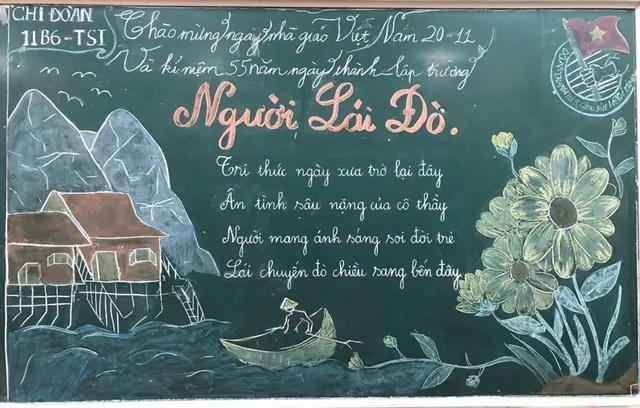 CHI ĐOÀN
11B6-TSI
Chào mừng ngày nhà giáo Việt Nam 20-11
Và kỉ niệm 55 năm ngày thành lập trường
Người Lái Đò.
Tri thức ngày xưa trở lại đây
Ân tình sâu nặng của cô thầy
Người mang ánh sáng soi đời trẻ
Lái chuyến đò chiều sang bến đây